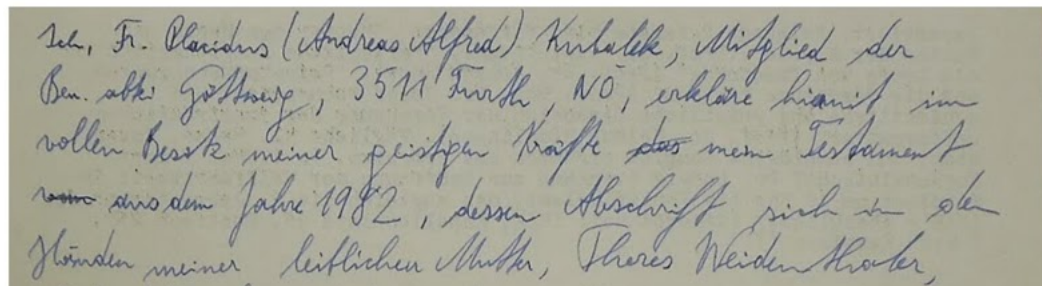 Ich, Fr. Placidus (Andreas Alfred) Kubalek, Mitglied der
Ben. abtei Göttweig, 3511 Furth, NÖ, erkläre hiermit im
vollen Besitz meiner geistigen Kräfte das mein Testament
vom aus dem Jahre 1982, dessen Abschrift sich in den
Händen meiner leiblichen Mutter, Theres Weidenthaler,